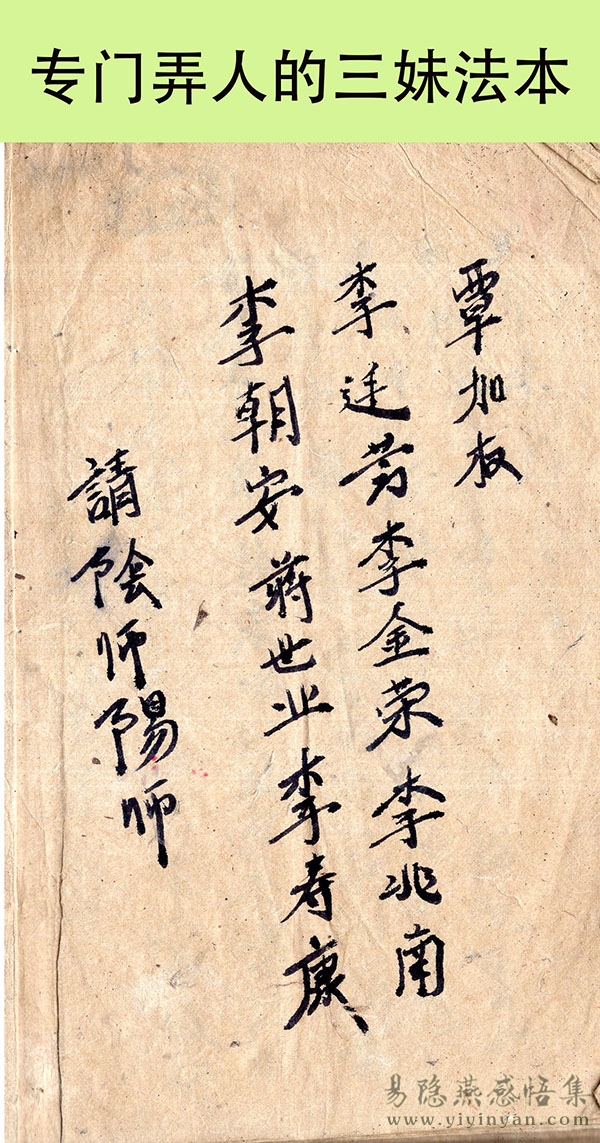 专门弄人的三妹法本
覃加权
李廷芳李金荣李兆南
李朝安蒋世业李寿康
請陰师陽师
易隐燕感悟集
www.yiyinyan.com